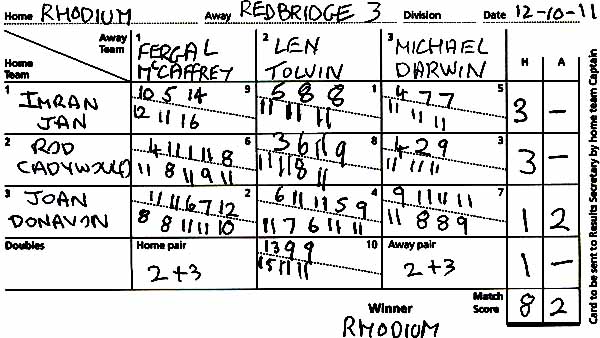 Home RHODIUM Away REDBRIDGE 3 Division Date 12-10-11
Away Team
Home Team
1 FERGAL McCAFFREY
2 LEN TOLVIN
3 MICHAEL DARWIN
H A
1 IMRAN JAN
10 5 14 9
12 11 16
5 8 8 1
11 11 11
4 7 7 5
11 11 11
3 –
2 ROD CADYWOULD
4 11 11 8 6
11 8 11 9 11
3 6 11 9 8
11 11 8 11
4 2 9 3
11 11 11
3 –
3 JOAN DONAVON
11 11 6 7 12 2
8 8 11 11 10
6 11 11 5 9 4
11 7 6 11 11
9 11 11 11 7
11 8 8 9
1 2
Doubles
Home pair
2+3
13 9 9 10
15 11 11
Away pair
2+3
1 –
Winner
RHODIUM
Match Score 8 2
Card to be sent to Results Secretary by home team Captain